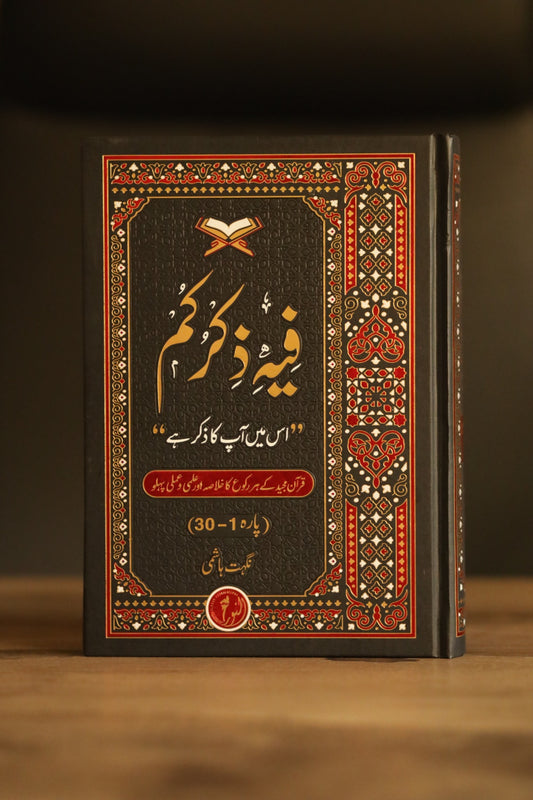 فِيهِ ذِكْرُكُمْ
”اس میں آپ کا ذکر ہے“
قرآن مجید کے ہر رکوع کا خلاصہ اور علمی و عملی پہلو
(پارہ 1 – 30)
نگہت ہاشمی
النور